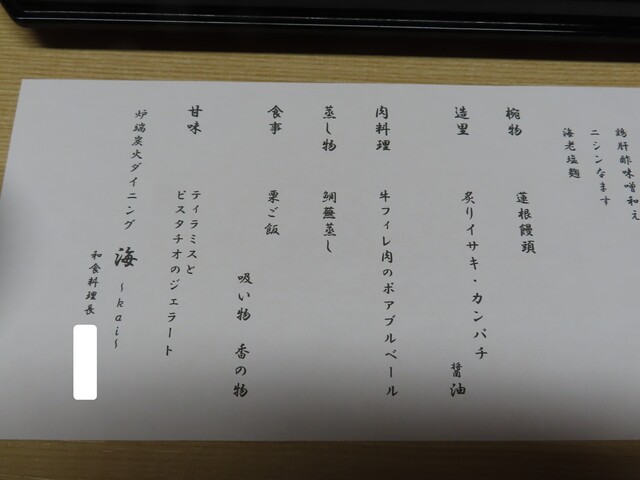 鶏肝酢味噌和え
ニシンなます
海老塩麹
椀物　蓮根饅頭
造里　炙りイサキ・カンパチ　醤油
肉料理　牛フィレ肉のポアブルベール
蒸し物　鯛蕪蒸し
食事　栗ご飯
吸い物　香の物
甘味　ティラミスと
ピスタチオのジェラート
炉端炭火ダイニング　海　～kai～
和食料理長